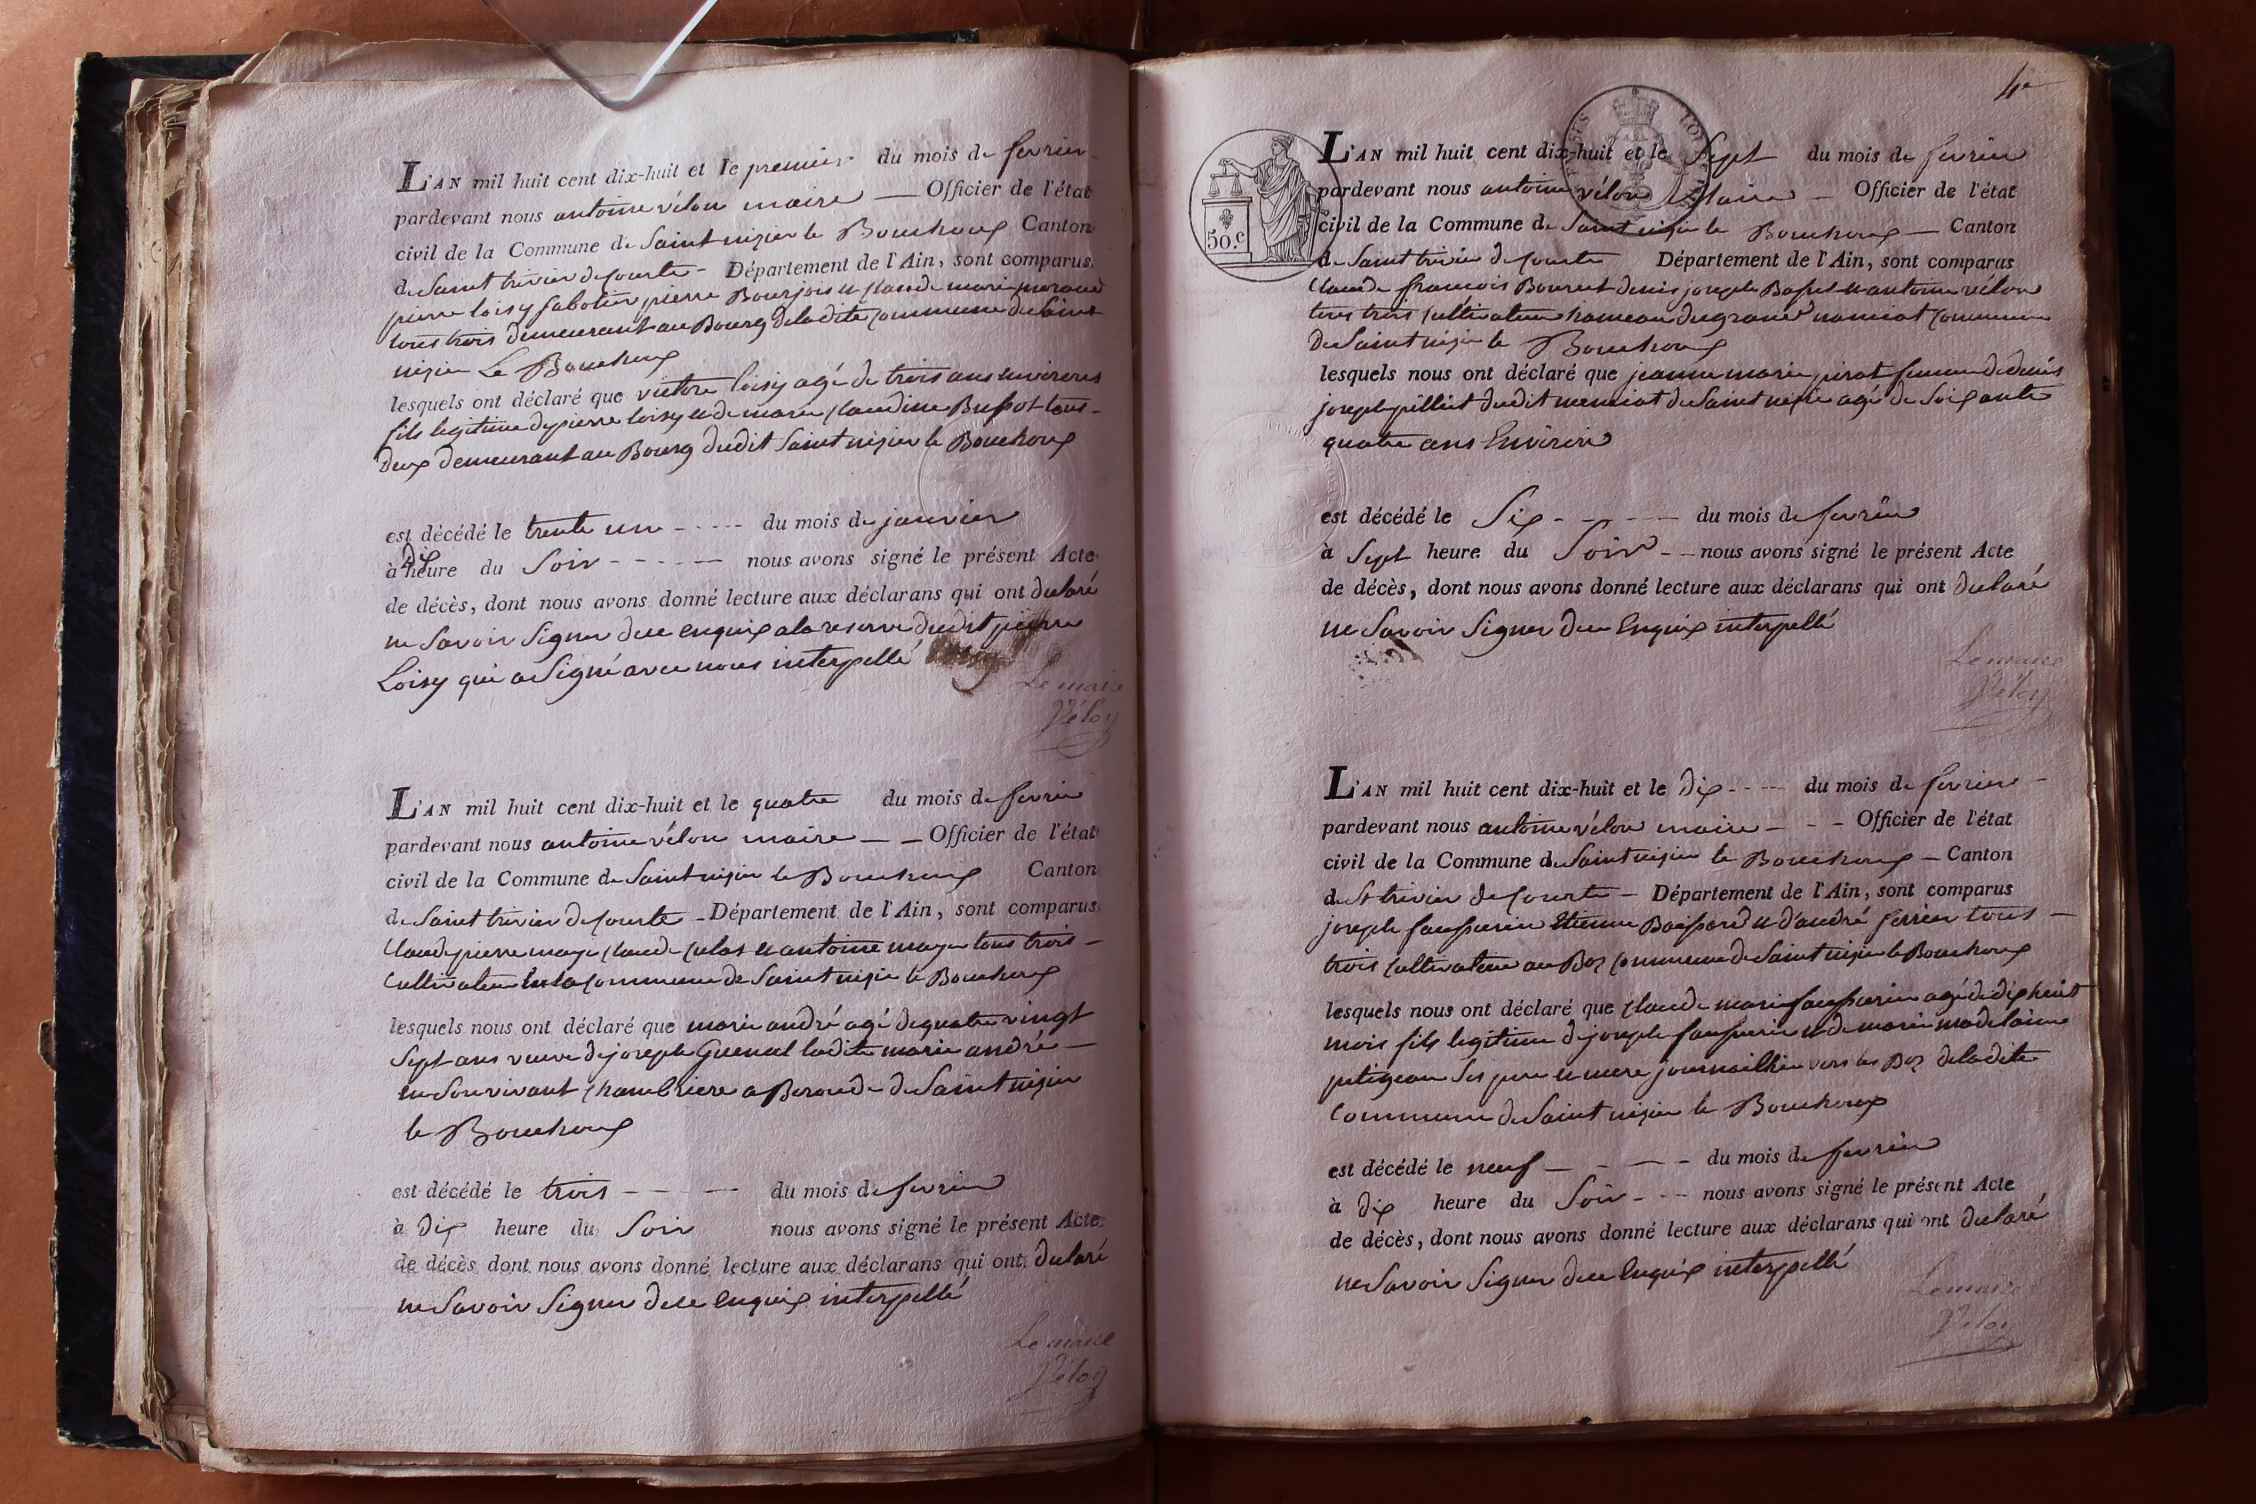 L'AN mil huit cent dix-huit et le premier du mois de fevrier
pardevant nous antoine vélon maire — Officier de l'état
civil de la Commune de Saint nizier le Bouchoux Canton
de Saint trivier de Courte - Département de l'Ain, sont comparus
pierre loisy sabotier pierre Bourjois et Claude marie moraud
tous trois demeurant au Bourg de la dite Commune de Saint
nizier Le Bouchoux
lesquels ont déclaré que victore loisy agé de trois ans environs
fils legitime de pierre loisy et de marie Claudine Buffot tous
deux demeurant au Bourg dudit Saint nizier le Bouchoux
est décédé le trente un ----- du mois de janvier
à dix heure du Soir ----- nous avons signé le présent Acte
de décès, dont nous avons donné lecture aux déclarans qui ont declaré
ne Savoir Signer de ce enquix a la reserve dudit pierre
Loisy qui a Signé avec nous interpellé
Le maire
Vélon
L'AN mil huit cent dix-huit et le quatre du mois de fevrier
pardevant nous antoine vélon maire — — Officier de l'état
civil de la Commune de Saint nizier le Bouchoux Canton
de Saint trivier de Courte - Département de l'Ain, sont comparus
Claude pierre maye Claude Culas et antoine maye tous trois —
Cultivateur en la Commune de Saint nizier le Bouchoux
lesquels nous ont déclaré que marie andré agé de quatre vingt
Sept ans veuve de joseph Guenal ladite marie andré —
en Son vivant Chambriere a Beroude de Saint nizier
le Bouchoux
est décédé le trois ---- du mois de fevrier
à Dix heure du Soir nous avons signé le présent Acte
de décès dont nous avons donné lecture aux déclarans qui ont declaré
ne Savoir Signer de ce enquix interpellé
Le maire
Vélon
4e
50.c
L'AN mil huit cent dix-huit et le Sept du mois de fevrier
pardevant nous antoine vélon Maire — Officier de l'état
civil de la Commune de Saint nizier le Bouchoux — Canton
de Saint trivier de Courte Département de l'Ain, sont comparus
Claude françois Bourcet denis joseph Bafset et antoine vélon
tous trois Cultivateur hameau du grand nomiat Commune
de Saint nizier le Bouchoux
lesquels nous ont déclaré que jeanne marie pirat femme de denis
joseph pilliet dudit de Saint nizier agé de Soixante
quatre ans Environ
est décédé le Six ---- du mois de fevrier
à Sept heure du Soir -- nous avons signé le présent Acte
de décès, dont nous avons donné lecture aux déclarans qui ont declaré
ne Savoir Signer de ce Enquix interpellé
Le maire
Vélon
L'AN mil huit cent dix-huit et le dix ---- du mois de fevrier —
pardevant nous antoine vélon maire — - - Officier de l'état
civil de la Commune de Saint nizier le Bouchoux — Canton
de St trivier de Courte — Département de l'Ain, sont comparus
joseph faussurier Etienne Boissard et d'andré ferrier tous —
trois Cultivateur au Boz Commune de Saint nizier le Bouchoux
lesquels nous ont déclaré que Claude marie faussurier agé de dix huit
mois fils legitime de joseph faussurier et de marie madelaine
petigean Ses pere et mere journaillier vers les Boz de la dite
Commune de Saint nizier le Bouchoux
est décédé le neuf — - — - du mois de fevrier
à Dix heure du Soir - -- nous avons signé le présent Acte
de décès, dont nous avons donné lecture aux déclarans qui ont declaré
ne Savoir Signer de ce Enquix interpellé
Le maire
Vélon